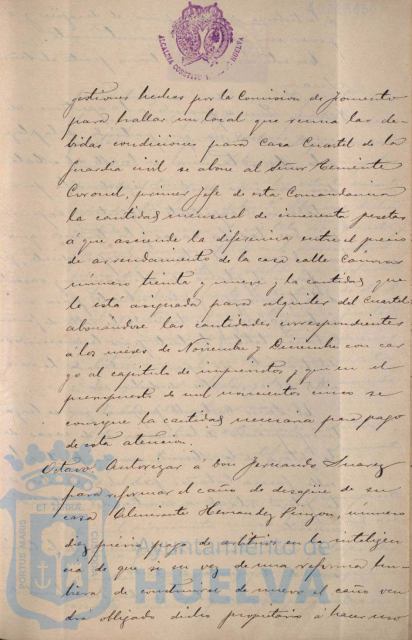 ALCALDIA CONSTITU HUELVA
gestiones hechas por la Comision de Fomento
para hallar un local que reuna las de-
bidas condiciones para Casa Cuartel de la
Guardia civil se abone al Señor Teniente
Coronel, primer Jefe de esta Comandancia
la cantidad mensual de cincuenta pesetas
á que asciende la diferencia entre el precio
de arrendamiento de la casa calle
número treinta y nueve y la cantidad que
le está asignada para alquiler del Cuartel
abonándose las cantidades correspondientes
a los meses de Noviembre y Diciembre con car-
go al capitulo de imprevistos y que en el
presupuesto de mil novecientos cinco se
consigne la cantidad necesaria para pago
de esta atencion.
Octavo. Autorizar a Don Fernando Suarez
para reformar el caño de desagüe de su
casa Almirante Hernandez Pinzon, número
diez previo pago de arbitrios en la inteligen-
cia de que si en vez de una reforma hu-
biera de construirse de nuevo el caño ven-
drá obligado dicho propietario á hacer uso
PORTUS MARIS ET TERRAE CUSTODIA
Ayuntamiento de
HUELVA